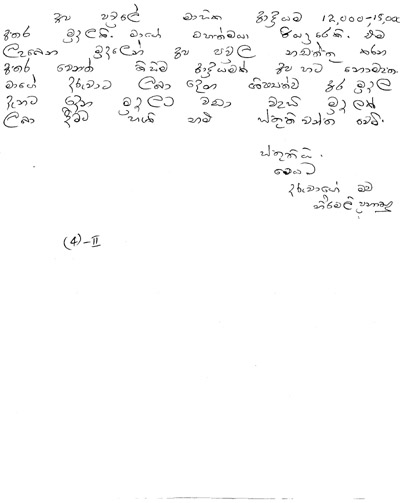 අප පවුලේ මාසික ආදායම 12,000-15,000
අතර මුදලකි. මාගේ මහත්මයා රියදුරෙකි. එම
ලැබෙන මුදලෙන් අප පවුල නඩත්තු කරන
අතර වෙනත් කිසිම ආදායමක් අප හට නොමැත.
මාගේ දරුවාට ලබා දෙන ශිෂ්‍යත්ව ආර මුදල
දැනට දෙන මුදලට වඩා වැඩි මුදලක්
ලබා දීමට හැකි නම් ස්තුති වන්ත වෙමි.
ස්තුතියි.
මෙයට
දරුවාගේ මව
නිර්මලි
(4)-II